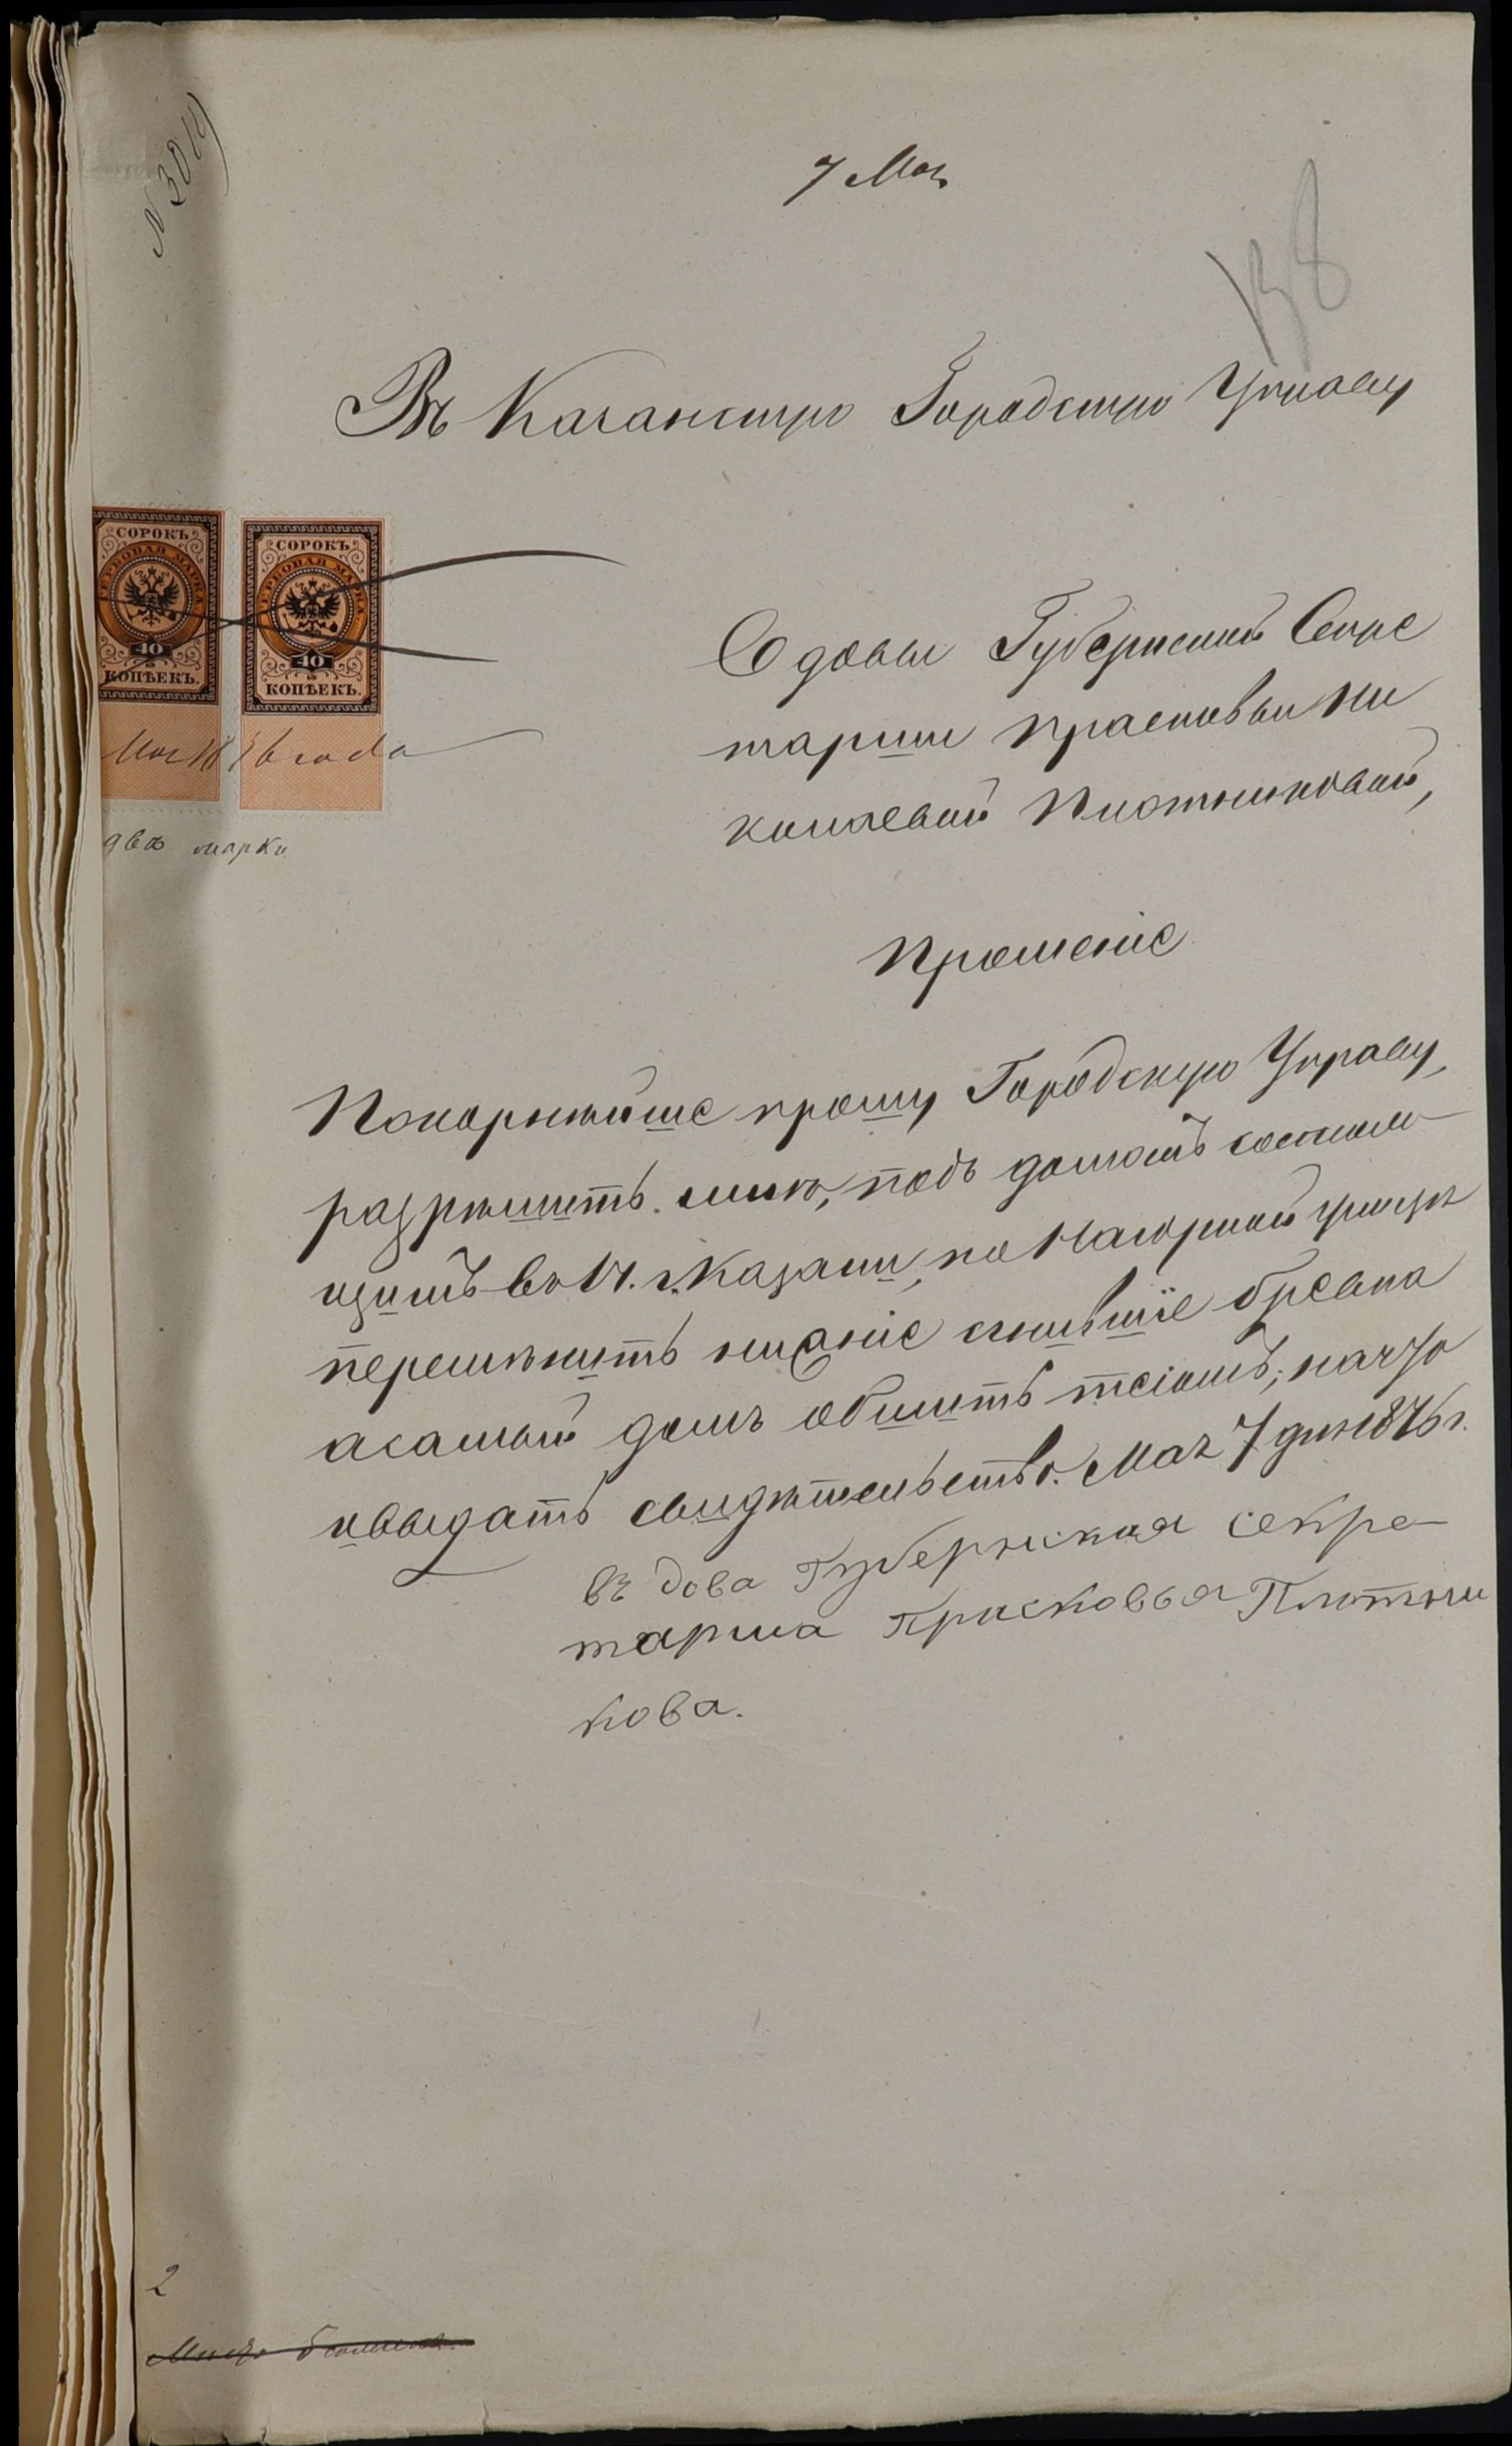 № 3019
7 Мая
Въ Казанскую Городскую Управу
СОРОКЪ СОРОКЪ
ГЕРБОВАЯ МАРКА ГЕРБОВАЯ МАРКА
40 40
КОПѢЕКЪ. КОПѢЕКЪ.
Мая 1876 года
двѣ марки
Вдовы Губернской Секре
тарши Прасковьи Ни
колаевой Плотниковой,
Прошеніе
Покорнѣйше прошу Городскую Управу,
разрѣшить мнѣ, подъ домомъ состоя
щимъ въ 1 ч. г. Казани, по Нагорной улицѣ
перемѣнить нижніе сгнившіе бревна
а самый домъ обшить тесомъ; на что
и выдать свидѣтельство. Мая 7 дня 1876 г.
въдова Губернская секре-
тарша Прасковья Плотни
кова.
2